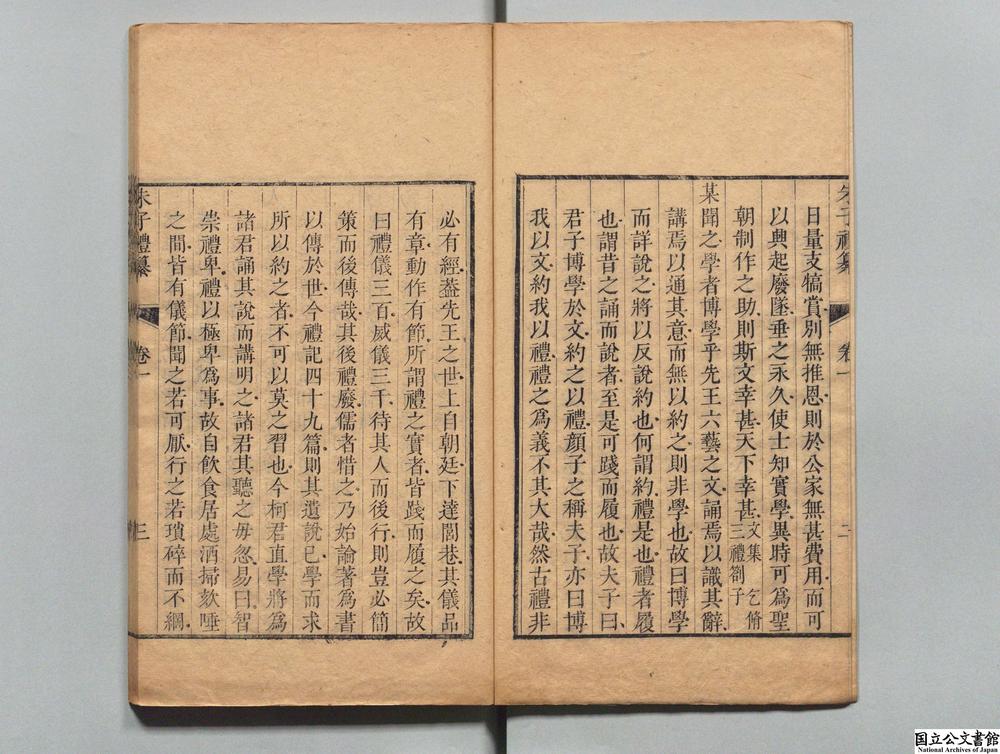 朱子禮纂
卷一
二
日量支犒賞別無推恩則於公家無甚費用而可
以興起廢墜垂之永久使士知實學異時可為聖
朝制作之助則斯文幸甚天下幸甚文集 乞脩三禮劄子
某聞之學者博學乎先王六藝之文誦焉以識其辭
講焉以通其意而無以約之則非學也故曰博學
而詳說之將以反說約也何謂約禮是也禮者履
也謂昔之誦而說者至是可踐而履也故夫子曰
君子博學於文約之以禮顏子之稱夫子亦曰博
我以文約我以禮禮之為義不其大哉然古禮非
必有經葢先王之世上自朝廷下達閭巷其儀品
有章動作有節所謂禮之實者皆踐而履之矣故
曰禮儀三百威儀三千待其人而後行則豈必簡
策而後傳哉其後禮廢儒者惜之乃始論著為書
以傳於世今禮記四十九篇則其遺說已學而求
所以約之者不可以莫之習也今柯君直學將為
諸君誦其說而講明之諸君其聽之毋忽易曰智
崇禮卑禮以極卑為事故自飲食居處洒掃欬唾
之間皆有儀節聞之若可厭行之若瑣碎而不綱
朱子禮纂
卷一
三
国立公文書館
National Archives of Japan